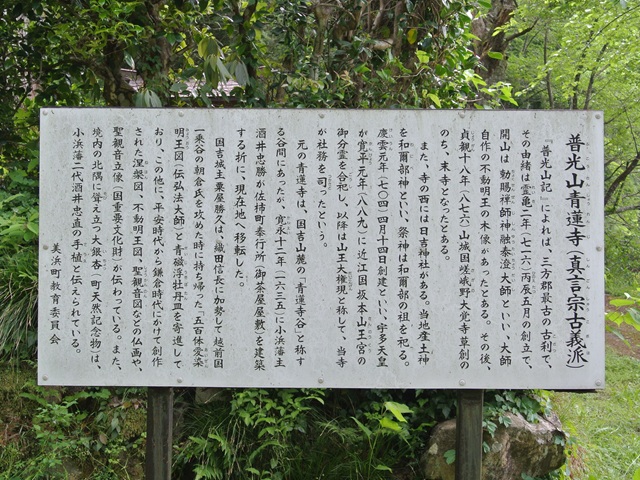 普光山青蓮寺(真言宗古義派)
『普光山記』によれば、三方郡最古の古刹で、
その由緒は霊亀二年(七一六)丙辰五月の創立で、
開山は勅賜禅師神融泰澄大師といい、大師
自作の不動明王の木像があったとある。その後、
貞観十八年(八七六)山城国嵯峨野大覚寺草創の
のち、末寺となったとある。
また、寺の西には日吉神社がある。当地産土神
を和爾部神といい、祭神は和爾部の祖を祀る。
慶雲元年(七〇四)四月十四日創建といい、宇多天皇
が寛平元年(八八九)に近江国坂本山王宮の
御分霊を合祀し、以降は山王大権現と称して、当寺
が社務を司ったという。
元の青蓮寺は、国吉山麓の「青蓮寺谷」と称す
る谷間にあったが、寛永十二年(一六三五)に小浜藩主
酒井忠勝が佐柿町奉行所(御茶屋屋敷)を建築
する折に、現在地へ移転した。
国吉城主粟屋勝久は、織田信長に加勢して越前国
一乗谷の朝倉氏を攻めた時に持ち帰った「五百体愛染
明王図(伝弘法大師)と青磁浮牡丹皿を寄進して
おり、この他に、平安時代から鎌倉時代にかけて創作
された涅槃図、不動明王図、聖観音図などの仏画や
聖観音立像(国重要文化財)が伝わっている。また、
境内の北隅に聳え立つ大銀杏(町天然記念物)は、
小浜藩二代酒井忠直の手植と伝えられている。
美浜町教育委員会